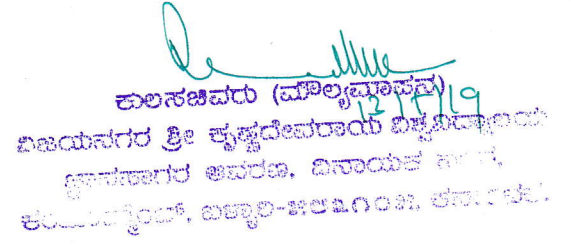 ಕುಲಸಚಿವರು (ಮೌಲ್ಯಮಾಪನ)
13/5/19
ವಿಜಯನಗರ ಶ್ರೀ ಕೃಷ್ಣದೇವರಾಯ ವಿಶ್ವವಿದ್ಯಾಲಯ
ಜ್ಞಾನಸಾಗರ ಆವರಣ, ವಿನಾಯಕ ನಗರ,
ಕಂಟೋನ್ಮೆಂಟ್, ಬಳ್ಳಾರಿ-೫೮೩೧೦೫. ಕರ್ನಾಟಕ.